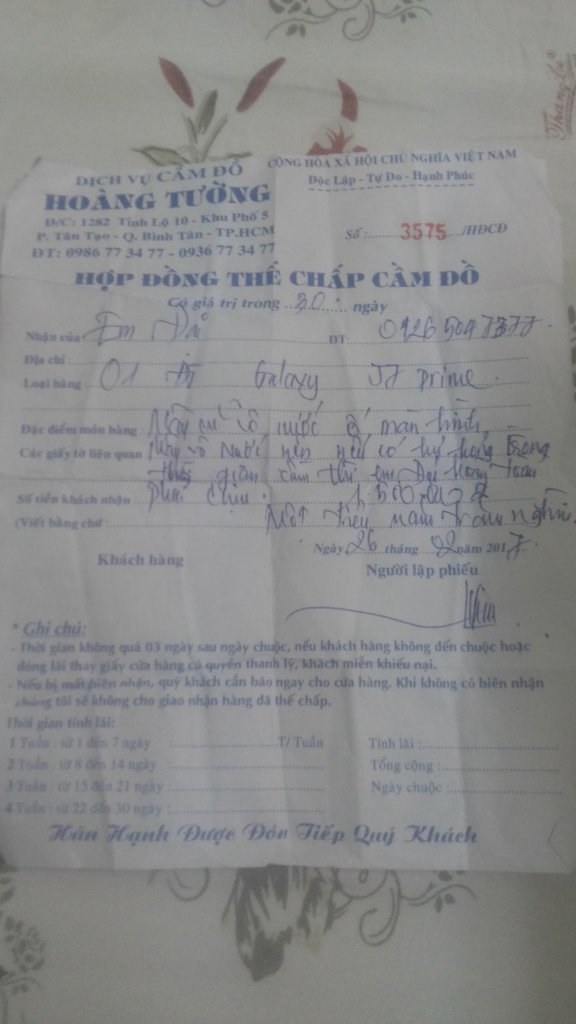 DỊCH VỤ CẦM ĐỒ
HOÀNG TƯỜNG
Đ/C: 1282 Tỉnh Lộ 10 - Khu Phố 5
P. Tân Tạo - Q. Bình Tân - TP.HCM
ĐT: 0986 77 34 77 - 0936 77 34 77
CỘNG HÒA XÃ HỘI CHỦ NGHĨA VIỆT NAM
Độc Lập - Tự Do - Hạnh Phúc
Số: 3575 /HĐCĐ
HỢP ĐỒNG THẾ CHẤP CẦM ĐỒ
Có giá trị trong 30 ngày
Nhận của Em ĐT
Địa chỉ
Loại hàng 01 Galaxy J7 prime
Đặc điểm món hàng: nước ố màn hình
Các giấy tờ liên quan nước nên nếu có hư hỏng trong
thời gian cầm thì em hoàn toàn
Số tiền khách nhận phải chịu.
(Viết bằng chữ Một triệu năm trăm nghìn
Ngày 26 tháng 02 năm 2017
Khách hàng
Người lập phiếu
* Ghi chú:
- Thời gian không quá 03 ngày sau ngày chuộc, nếu khách hàng không đến chuộc hoặc
đóng lãi thay giấy cửa hàng có quyền thanh lý, khách miễn khiếu nại.
- Nếu bị mất biên nhận, quý khách cần báo ngay cho cửa hàng. Khi không có biên nhận
chúng tôi sẽ không cho giao nhận hàng đã thế chấp.
Thời gian tính lãi:
1 Tuần : từ 1 đến 7 ngày : T/ Tuần Tính lãi :
2 Tuần : từ 8 đến 14 ngày : Tổng cộng :
3 Tuần : từ 15 đến 21 ngày : Ngày chuộc :
4 Tuần : từ 22 đến 30 ngày :
Hân Hạnh Được Đón Tiếp Quý Khách